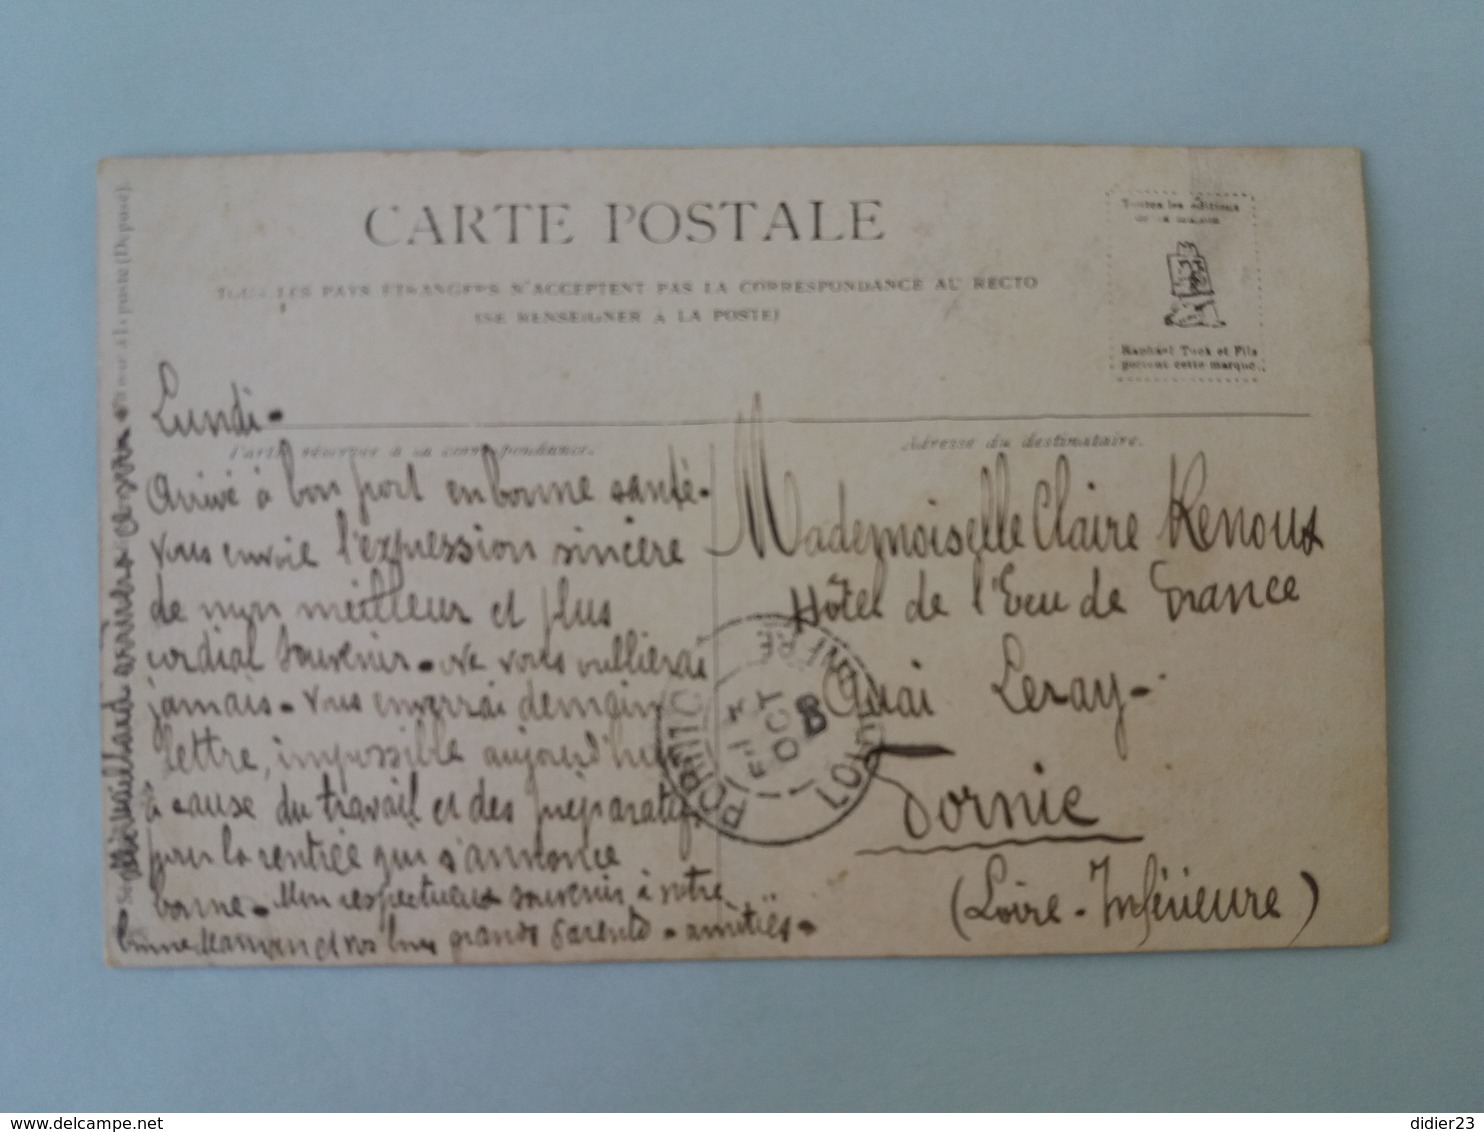 CARTE POSTALE
TOUS LES PAYS ETRANGERS N'ACCEPTENT PAS LA CORRESPONDANCE AU RECTO
(SE RENSEIGNER A LA POSTE)
Toutes les éditions
de la maison
Raphael Tuck et Fils
portent cette marque.
Partie réservée à la correspondance.
Adresse du destinataire.
Lundi -
Arrivé à bon port en bonne santé -
vous envoie l'expression sincère
de mon meilleur et plus
cordial souvenir - Ne vous oublierai
jamais - Vous enverrai demain
lettre, impossible aujourd'hui
à cause du travail et des préparatifs
pour la rentrée qui s'annonce
bonne - Mon respectueux souvenir à votre
bonne Maman et vos bons grands Parents - amitiés -
Mademoiselle Claire Renoux
Hôtel de l'Ecu de France
Quai Leray -
Pornic
(Loire - Inférieure)
PORNIC
OCT
LOIRE INFRE
à la poste (Déposé).
delcampe.net
didier23